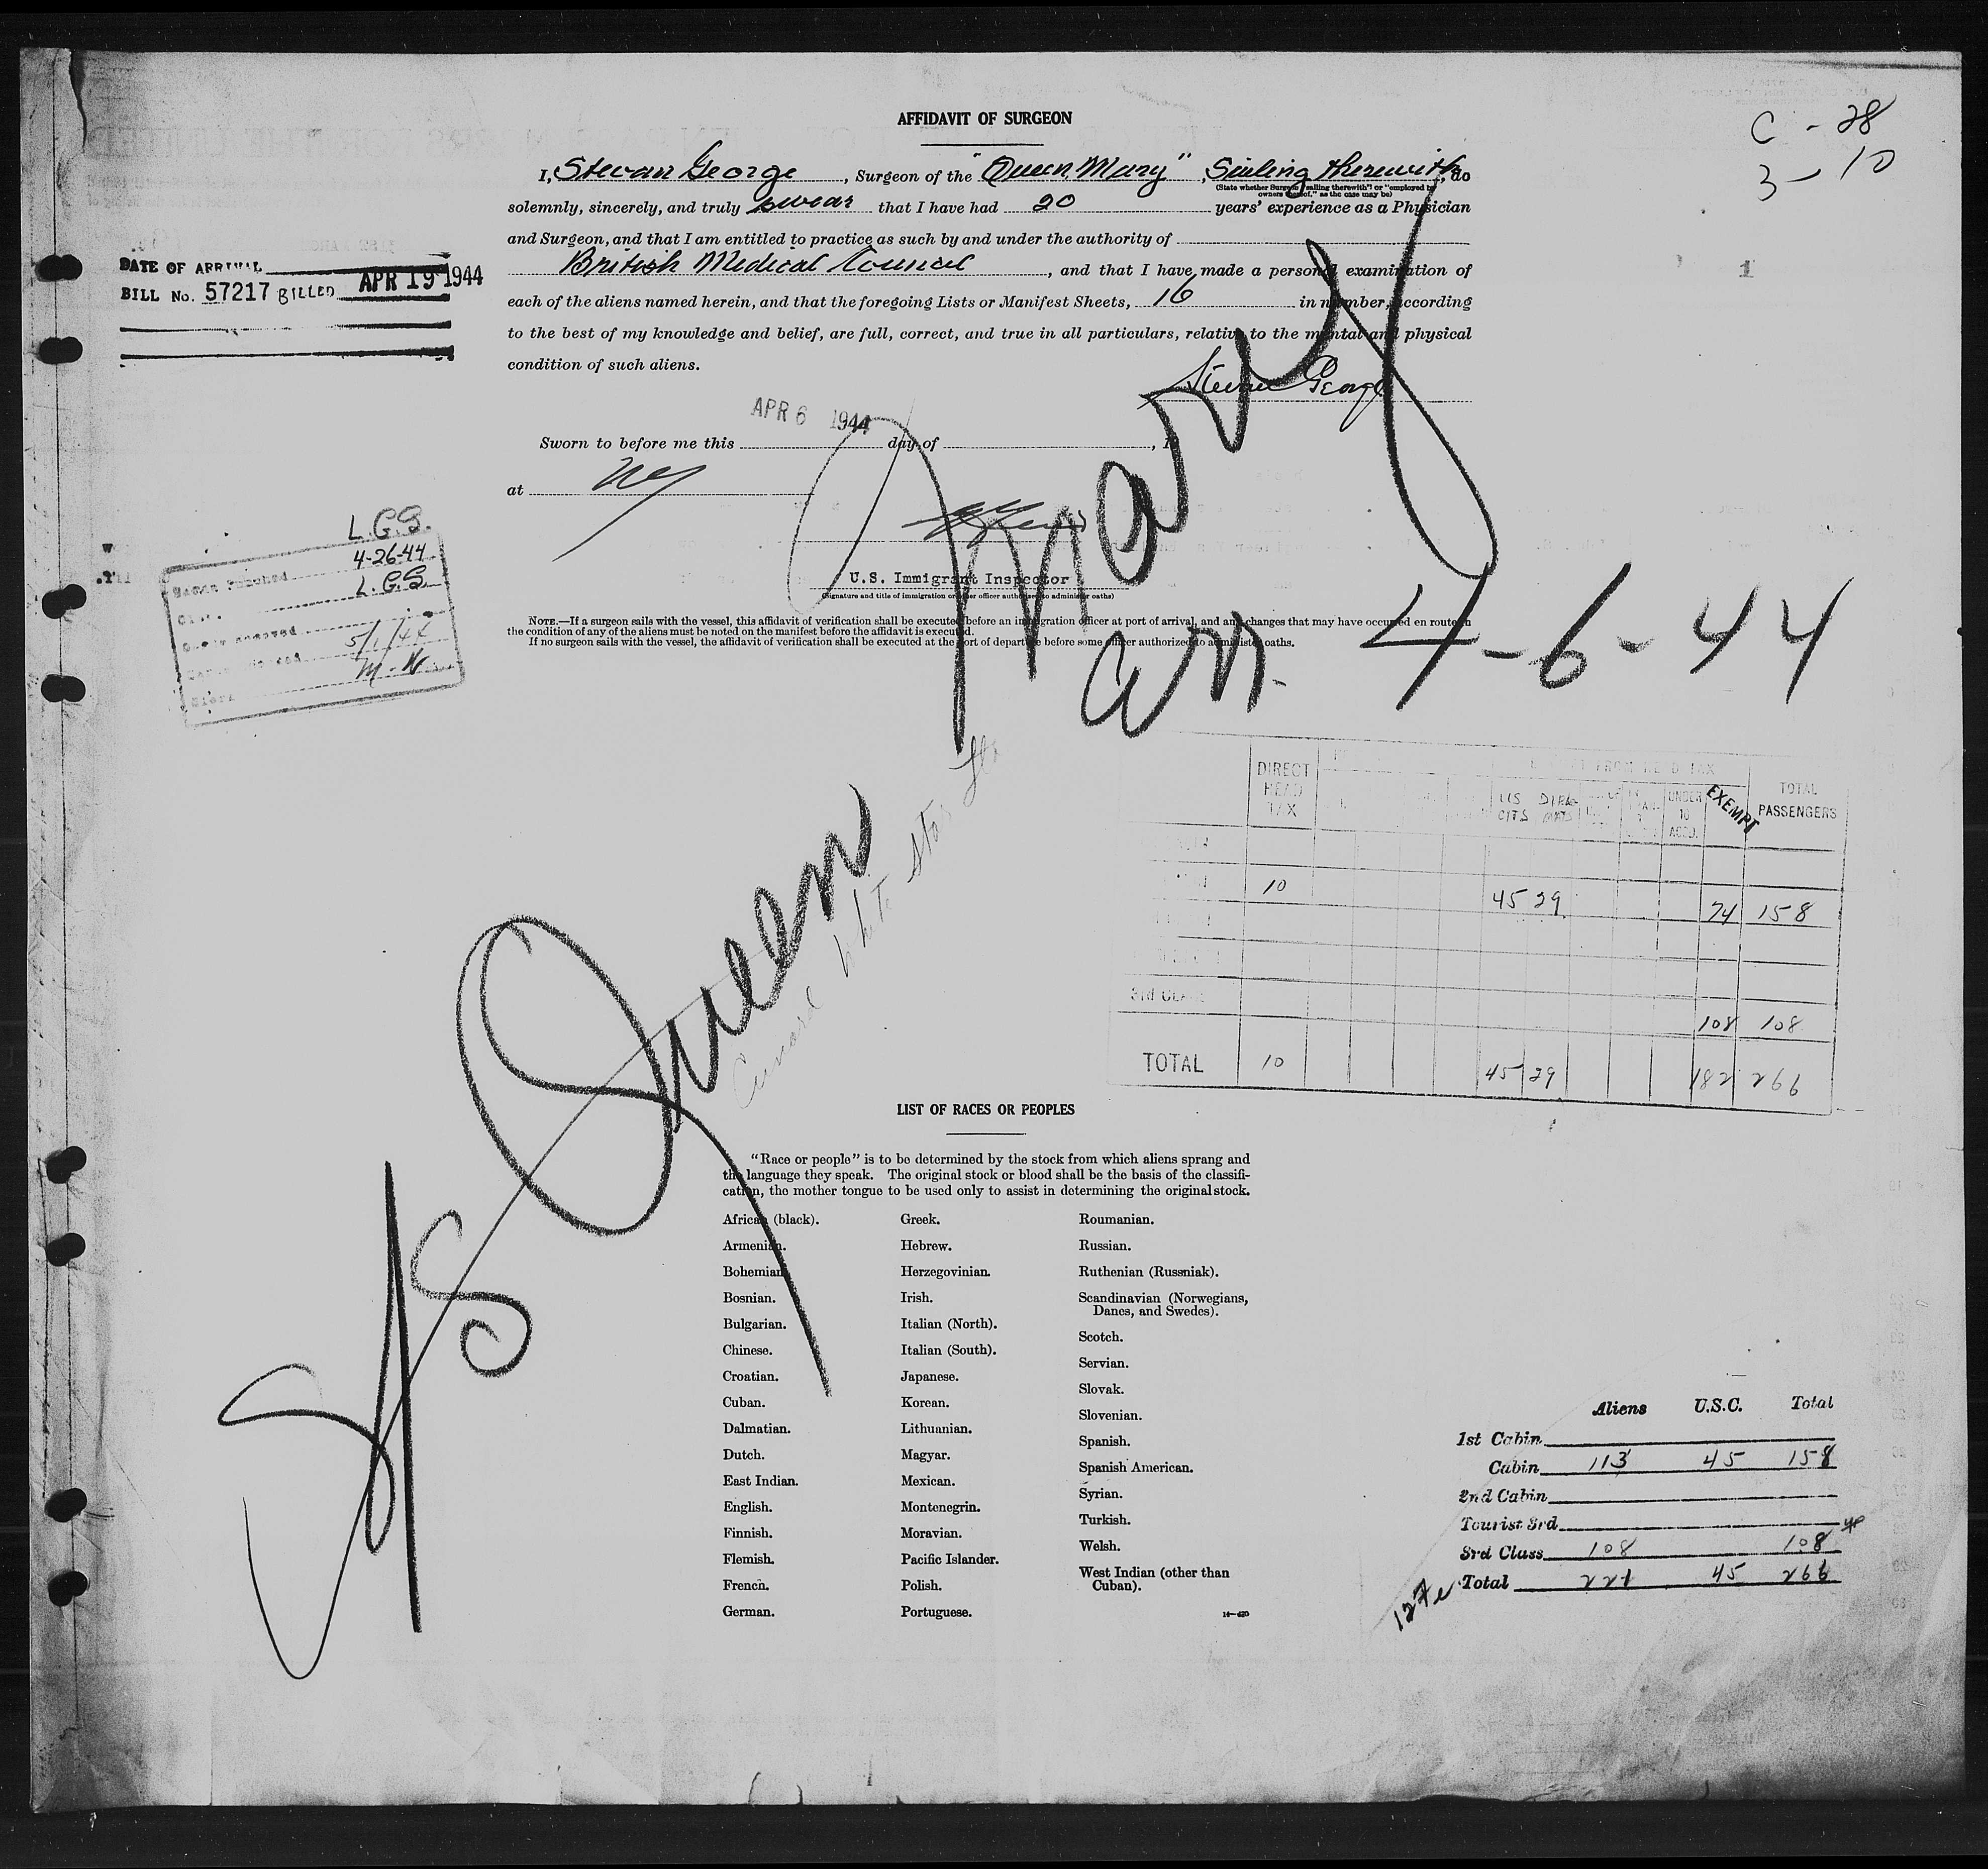 AFFIDAVIT OF SURGEON
C - 28
3 - 10
I, Stevan George, Surgeon of the "Queen Mary", Sailing therewith, do
(State whether Surgeon "sailing therewith" or "employed by owners thereof," as the case may be)
solemnly, sincerely, and truly swear that I have had 20 years' experience as a Physician
and Surgeon, and that I am entitled to practice as such by and under the authority of
British Medical Council, and that I have made a personal examination of
each of the aliens named herein, and that the foregoing Lists or Manifest Sheets, 16 in number, according
to the best of my knowledge and belief, are full, correct, and true in all particulars, relative to the mental and physical
condition of such aliens.
Stevan George
DATE OF ARRIVAL
BILL No. 57217 BILLED APR 19 1944
1
APR 6 1944
Sworn to before me this day of , 1
at NY
U.S. Immigrant Inspector
(Signature and title of immigration or other officer authorized to administer oaths)
NOTE.—If a surgeon sails with the vessel, this affidavit of verification shall be executed before an immigration officer at port of arrival, and any changes that may have occurred en route in
the condition of any of the aliens must be noted on the manifest before the affidavit is executed.
If no surgeon sails with the vessel, the affidavit of verification shall be executed at the port of departure before some officer authorized to administer oaths.
L.G.S.
4-26-44
L.G.S.
5/1/44
M.N.
S/S Queen Mary
arr. 4-6-44
Cunard White Star
DIRECT HEAD TAX
FROM HEAD TAX
US CITS
UNDER 16
EXEMPT
TOTAL PASSENGERS
10 45 29 74 158
3rd CLASS
108 108
TOTAL 10 45 29 182 266
LIST OF RACES OR PEOPLES
"Race or people" is to be determined by the stock from which aliens sprang and
the language they speak. The original stock or blood shall be the basis of the classifi-
cation, the mother tongue to be used only to assist in determining the original stock.
African (black).
Armenian.
Bohemian.
Bosnian.
Bulgarian.
Chinese.
Croatian.
Cuban.
Dalmatian.
Dutch.
East Indian.
English.
Finnish.
Flemish.
French.
German.
Greek.
Hebrew.
Herzegovinian.
Irish.
Italian (North).
Italian (South).
Japanese.
Korean.
Lithuanian.
Magyar.
Mexican.
Montenegrin.
Moravian.
Pacific Islander.
Polish.
Portuguese.
Roumanian.
Russian.
Ruthenian (Russniak).
Scandinavian (Norwegians,
Danes, and Swedes).
Scotch.
Servian.
Slovak.
Slovenian.
Spanish.
Spanish American.
Syrian.
Turkish.
Welsh.
West Indian (other than
Cuban).
14—420
Aliens U.S.C. Total
1st Cabin
Cabin 113 45 158
2nd Cabin
Tourist 3rd
3rd Class 108 108
Total 221 45 266